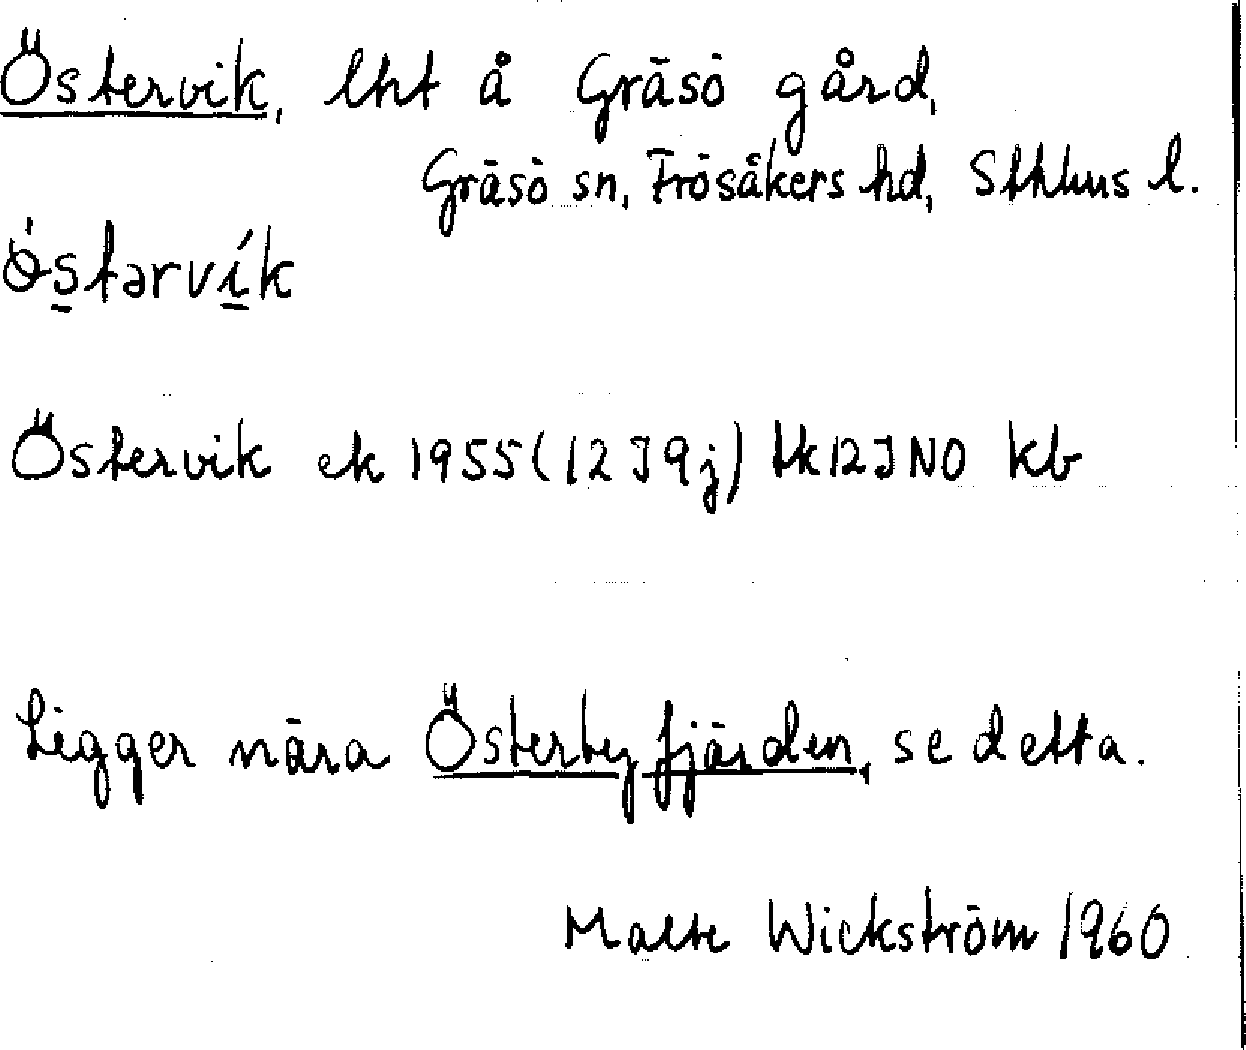 Östervik, lht å Gräsö gård,
Gräsö sn, Frösåkers hd, Sthlms l.
Östervik ek 1955 (12 J 9 j) tk 12 J NO kb
Ligger nära Österbyfjärden, se detta.
Malte Wickström 1960